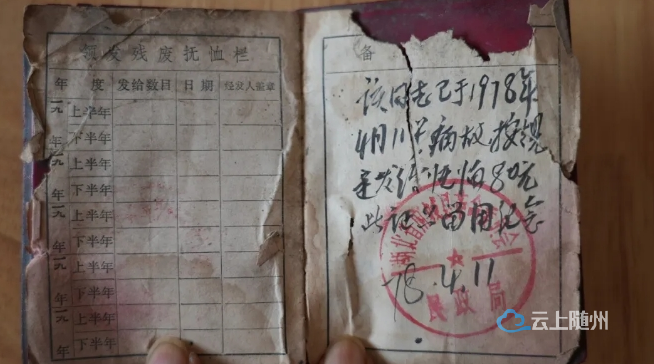 领发残废抚恤栏
年度 发给数目 日期 经发人签章
一九 年 上半年
下半年
一九 年 上半年
下半年
一九 年 上半年
下半年
一九 年 上半年
下半年
一九 年 上半年
下半年
备
该同志已于1978年
4月11日病故按规
定发给抚恤
此证留用纪念
78.4.11
湖北省
民政局
云上随州